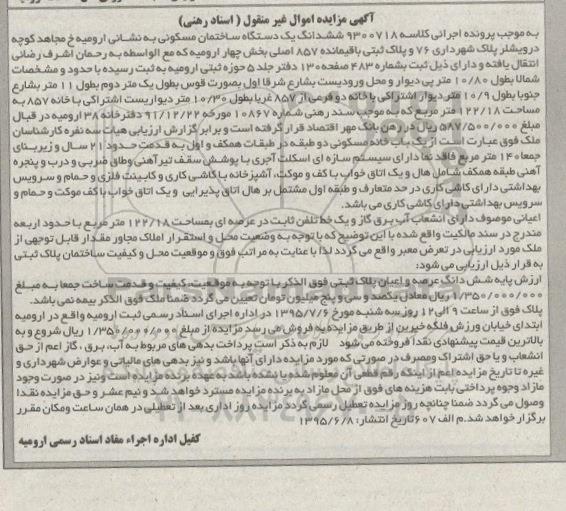 آگهی مزایده اموال غیر منقول ( اسناد رهنی)
به موجب پرونده اجرائی کلاسه ۹۳۰۰۷۱۸ ششدانگ یک دستگاه ساختمان مسکونی به نشانی ارومیه خ مجاهد کوچه
درویشلر پلاک شهرداری ۷۶ و پلاک ثبتی باقیمانده ۸۵۷ اصلی بخش چهار ارومیه که مع الواسطه به رحمان اشرف رضائی
انتقال یافته و دارای ذیل ثبت بشماره ۴۸۳ صفحه ۱۳۰ دفتر جلد ۵ حوزه ثبتی ارومیه به ثبت رسیده با حدود و مشخصات
شمالا بطول ۱۰/۸۰ متر پی دیوار و محل ورودیست بشارع شرقا اول بصورت قوس بطول یک متر دوم بطول ۱۱ متر بشارع
جنوبا بطول ۱۰/۹ متر دیوار اشتراکی با خانه دو فرعی از ۸۵۷ غربا بطول ۱۰/۳۰ متر دیواریست اشتراکی با خانه ۸۵۷ به
مساحت ۱۲۲/۱۸ متر مربع که به موجب سند رهنی شماره ۱۰۸۶۷ مورخه ۹۱/۱۲/۲۲ دفترخانه ۳۸ ارومیه در قبال
مبلغ ۵۸۷/۵۰۰/۰۰۰ ریال در رهن بانک مهر اقتصاد قرار گرفته است و برابر گزارش ارزیابی هیات سه نفره کارشناسان
ملک فوق عبارت است از یک باب خانه مسکونی دو طبقه در طبقات همکف و اول به قدمت حدود ۲۱ سال و زیربنای
جمعا ۱۴۰ متر مربع فاقد نما دارای سیستم سازه ای اسکلت آجری با پوشش سقف تیر آهنی وطاق ضربی و درب و پنجره
آهنی طبقه همکف شامل هال و یک اتاق خواب با کف و موکت، آشپزخانه با کاشی کاری و کابینت فلزی و حمام و سرویس
بهداشتی دارای کاشی کاری در حد متعارف و طبقه اول مشتمل بر هال اتاق پذیرایی و یک اتاق خواب با کف موکت و حمام و
سرویس بهداشتی دارای کاشی کاری می باشد.
اعیانی موصوف دارای انشعاب آب برق گاز و یک خط تلفن ثابت در عرصه ای بمساحت ۱۲۲/۱۸ متر مربع با حدود اربعه
مندرج در سند مالکیت واقع شده با این توضیح که با توجه به وضعیت محل و استقرار املاک مجاور مقدار قابل توجهی از
ملک مورد ارزیابی در تعرض معبر واقع می گردد لذا با عنایت به مراتب فوق و موقعیت محل و کیفیت ساختمان پلاک ثبتی
به قرار ذیل ارزیابی می شود:
ارزش پایه شش دانگ عرصه و اعیان پلاک ثبتی فوق الذکر با توجه به موقعیت، کیفیت و قدمت ساخت جمعا به مبلغ
۱/۳۵۰/۰۰۰/۰۰۰ ریال معادل یکصد و سی و پنج میلیون تومان تعیین می گردد ضمنا ملک فوق الذکر بیمه نمی باشد.
پلاک فوق از ساعت ۹ الی ۱۲ روز سه شنبه مورخ ۱۳۹۵/۷/۶ در اداره اجرای اسناد رسمی ثبت ارومیه واقع در ارومیه
ابتدای خیابان ورزش فلکه خیرین از طریق مزایده به فروش می رسد مزایده از مبلغ ۱/۳۵۰/۰۰۰/۰۰۰ ریال شروع و به
بالاترین قیمت پیشنهادی نقدا فروخته می شود لازم به ذکر است پرداخت بدهی های مربوط به آب، برق، گاز اعم از حق
انشعاب و یا حق اشتراک ومصرف در صورتی که مورد مزایده دارای آنها باشد و نیز بدهی های مالیاتی و عوارض شهرداری و
غیره تا تاریخ مزایده اعم از اینکه رقم قطعی آن معلوم شده یا نشده باشد به عهده برنده مزایده است ونیز در صورت وجود
مازاد وجوه پرداختی بابت هزینه های فوق از محل مازاد به برنده مزایده مسترد خواهد شد و نیم عشر و حق مزایده نقدا
وصول می گردد ضمنا چنانچه روز مزایده تعطیل رسمی گردد مزایده روز اداری بعد از تعطیلی در همان ساعت ومکان مقرر
برگزار خواهد شد.م الف ۶۰۷ تاریخ انتشار: ۱۳۹۵/۶/۸
کفیل اداره اجراء مفاد اسناد رسمی ارومیه